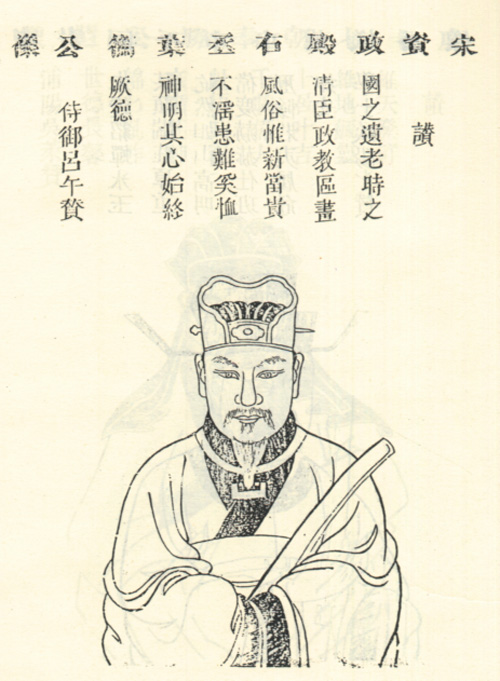 宋資政殿右丞葉公像
讚
國之遺老時之
清臣政教區畫
風俗惟新富貴
不滛患難奚恤
神明其心始終
厥德
侍御呂午贊